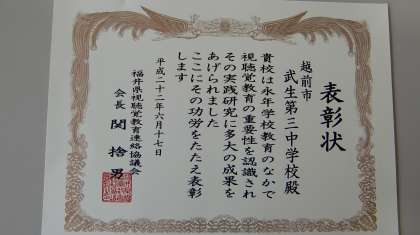 表彰状
越前市
武生第三中学校殿
貴校は永年学校教育のなかで
視聴覚教育の重要性を認識され
その実践研究に多大の成果を
あげられました
ここにその功労をたたえ表彰
します
平成二十二年六月十七日
福井県視聴覚教育連絡協議会
会長 関 捨男